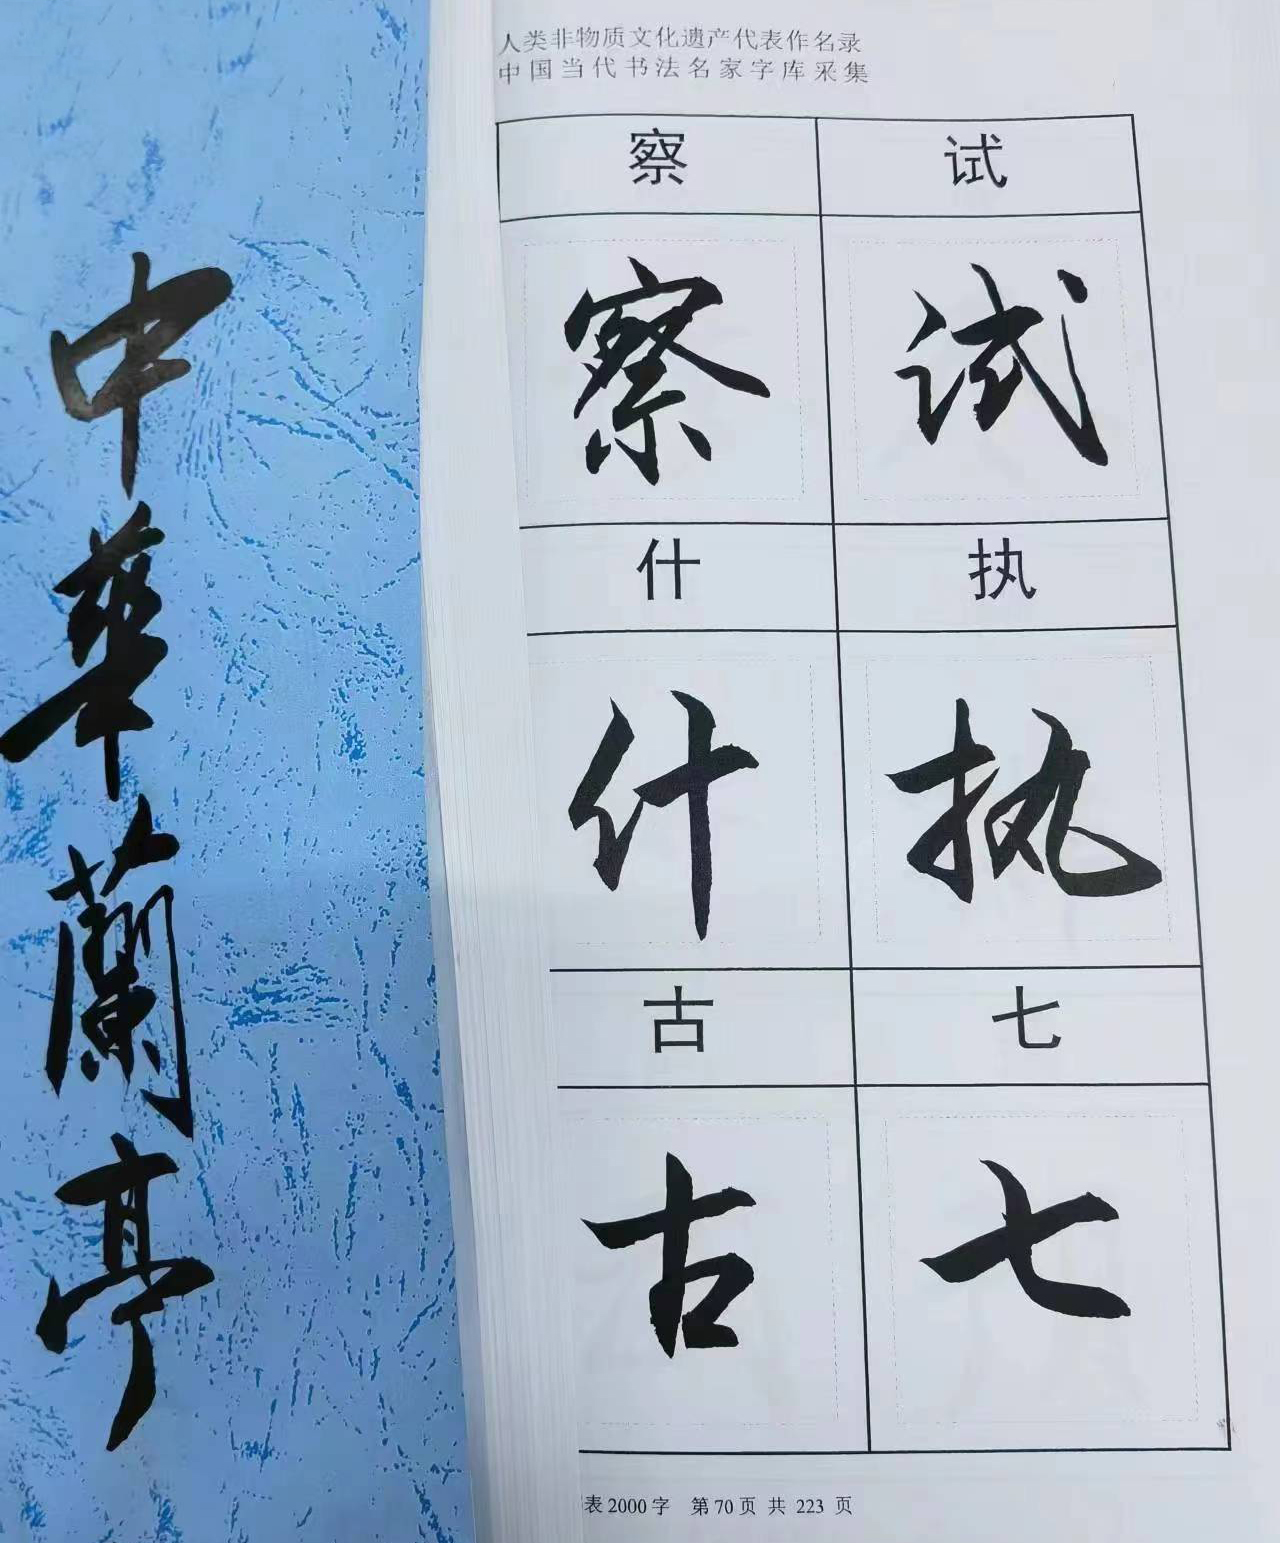 中華蘭亭
人类非物质文化遗产代表作名录
中国当代书法名家字库采集
察 试
察 试
什 执
什 执
古 七
古 七
表2000字 第70页 共 223 页